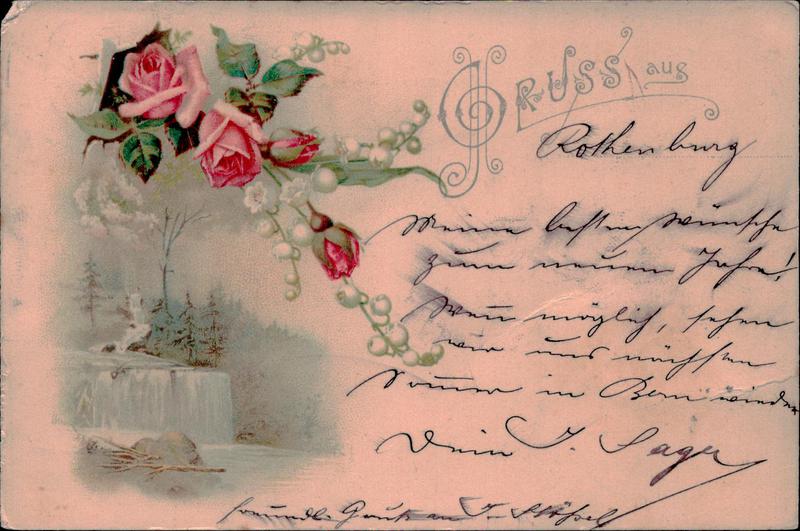 Gruss aus
Rothenburg
Meine besten Wünsche
zum neuen Jahre!
Wenn möglich, sehen
wir uns nächsten
Sommer in Bern wieder
Dein J. Sager
freundl. an